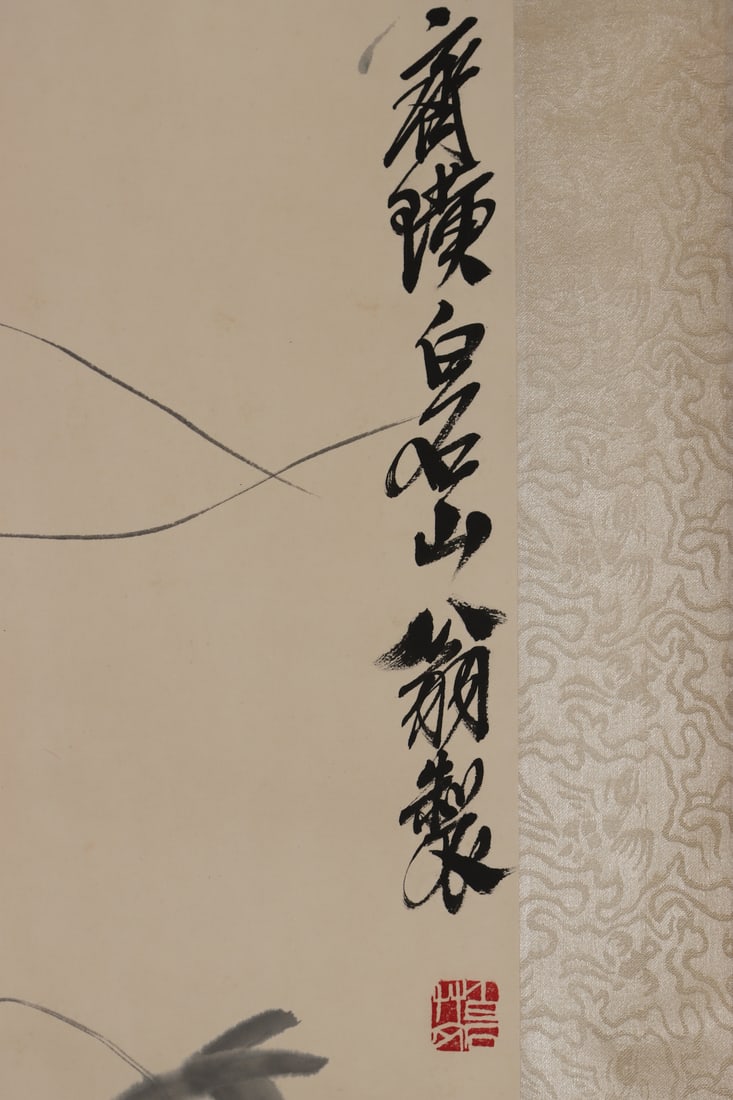 齊璜白石山翁製